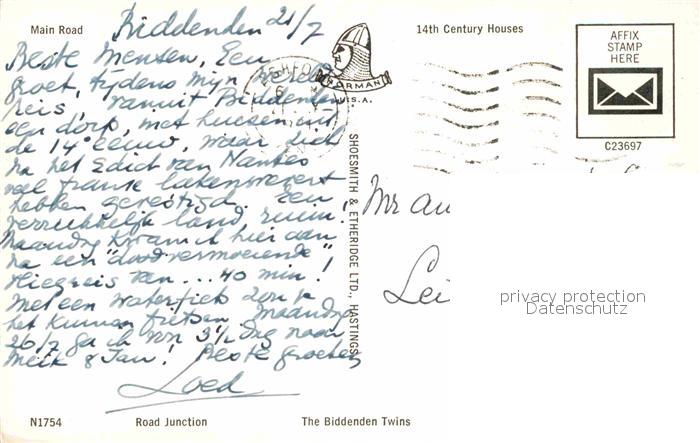 Main Road
14th Century Houses
Biddenden 21/7
Beste mensen, Een
groet, tijdens mijn
reis, vanuit Biddenden
een dorp, met huizen uit
de 14e eeuw, waar zich
na het Edict van Nantes
veel franse lakenwevers
hebben gevestigd. Een
verrukkelijk land, ruim!
Maandag kwam ik hier aan
na een "doodvermoeiende"
vliegreis van ... 40 min!
Met een waterfiets zou je
het kunnen fietsen. Maandag
26/7 ga ik voor 3½ dag naar
Meik & Jan! Beste groeten,
Loed
HARMAN
U.S.A.
AFFIX
STAMP
HERE
C23697
SHOESMITH & ETHERIDGE LTD., HASTINGS
Mr
Lei
privacy protection
Datenschutz
N1754
Road Junction
The Biddenden Twins